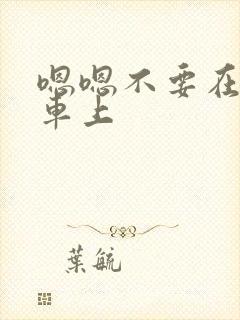 嗯嗯不要在
車上
葉毓